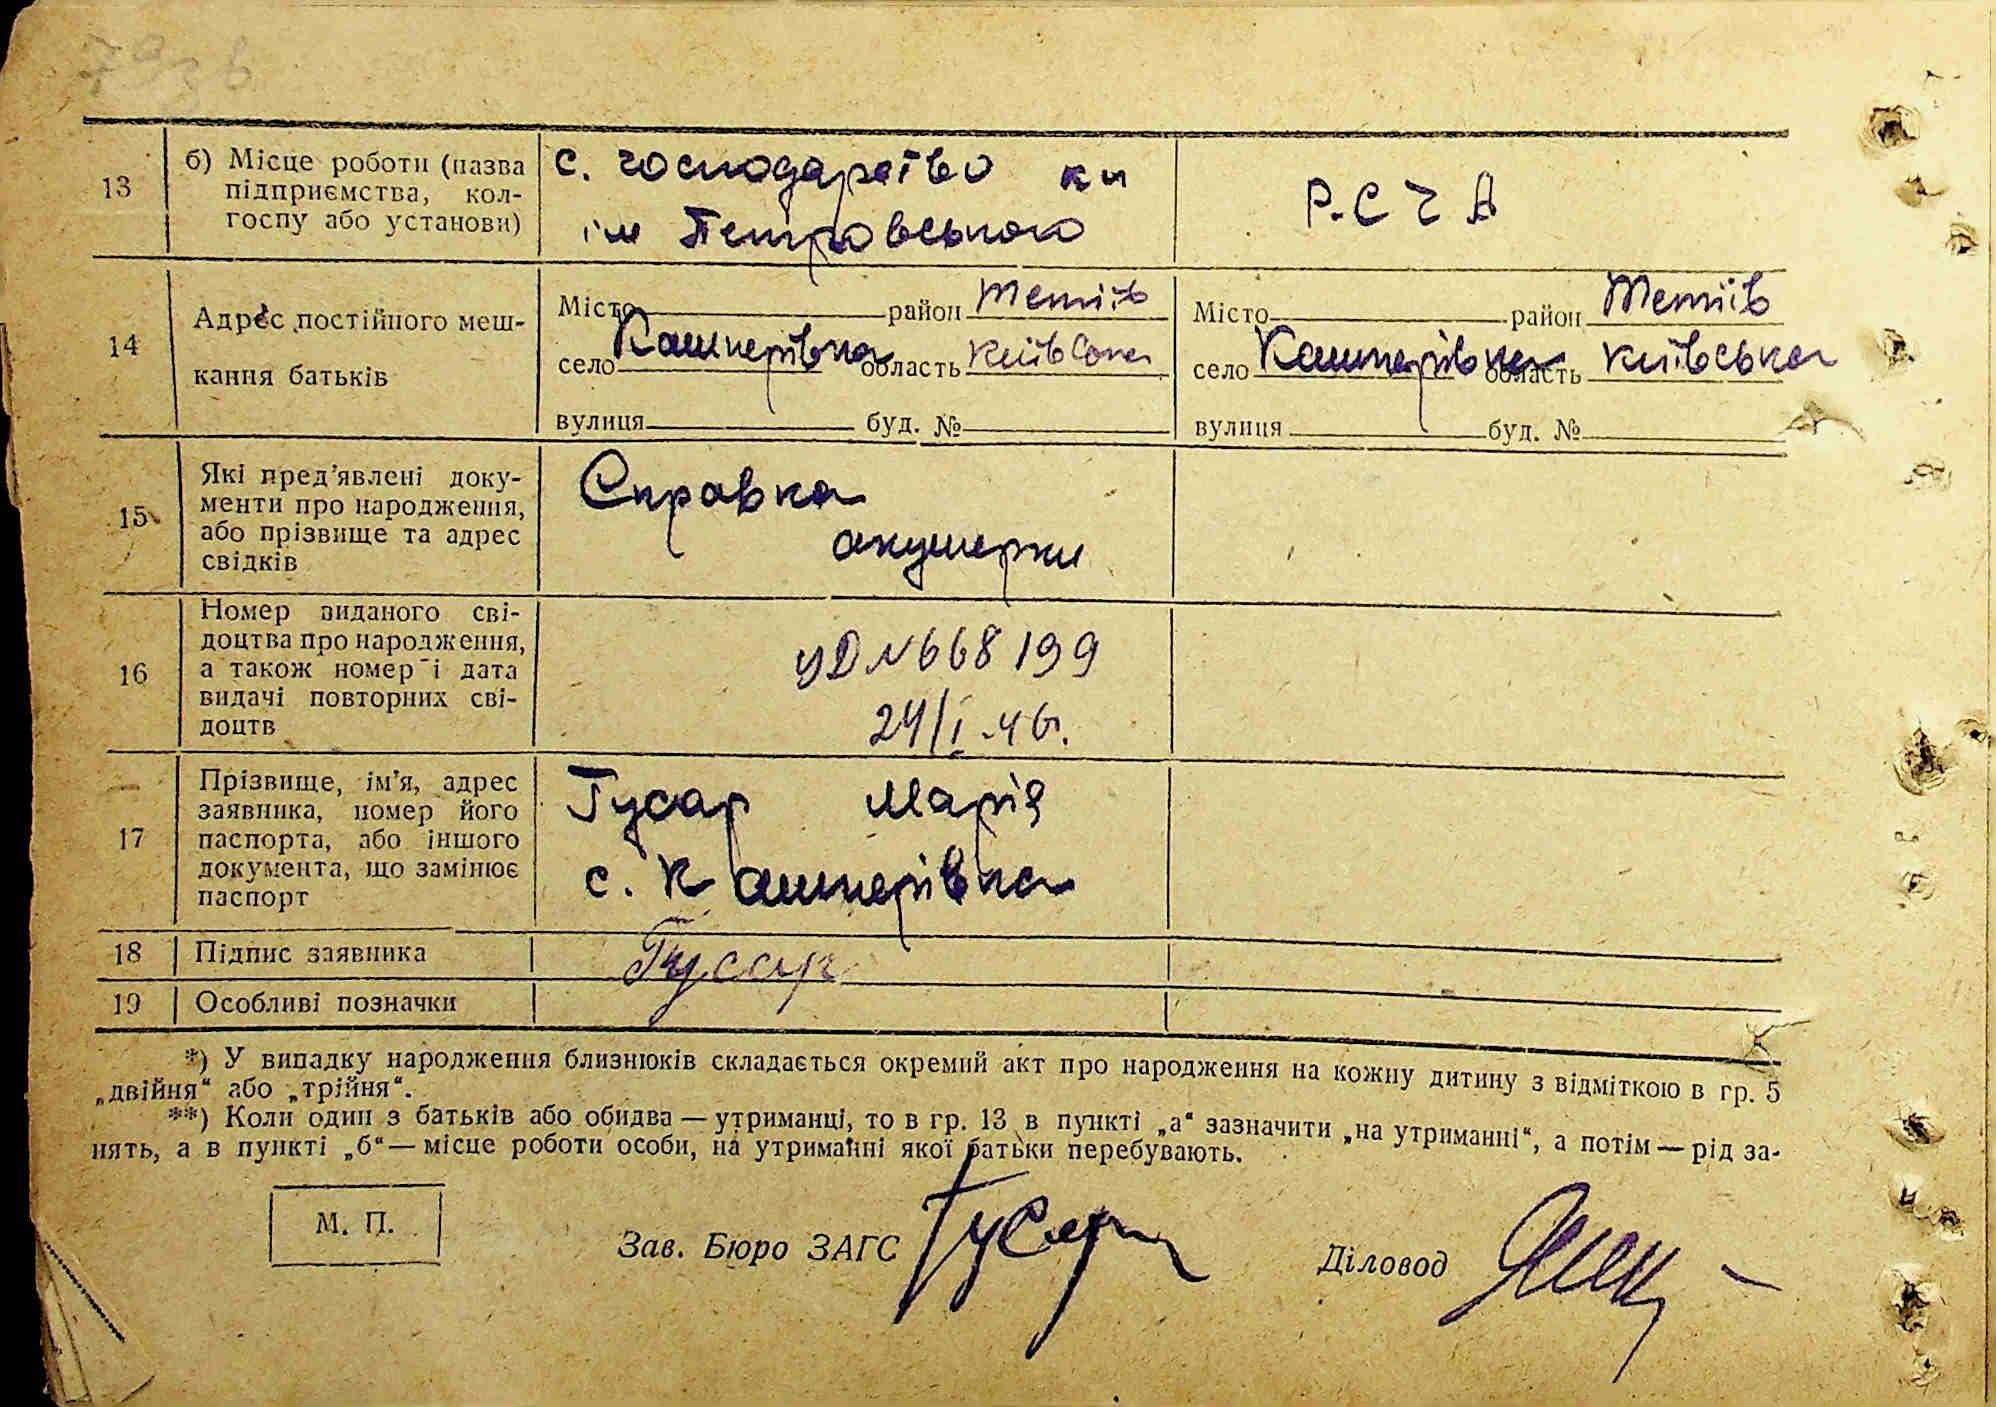 79зв
13 б) Місце роботи (назва с. господарство км Р.С Ч А
підприємства, кол-
госпу або установи) ім Петровського
14 Адрес постійного меш- Місто район Тетіїв Місто район Тетіїв
кання батьків село Кашперівка область Київська село Кашперівка область Київська
вулиця буд. № вулиця буд. №
15 Які пред'явлені доку- Справка
менти про народження,
або прізвище та адрес акушерки
свідків
16 Номер виданого сві-
доцтва про народження, УД №668199
а також номер і дата
видачі повторних сві- 24/I.46г.
доцтв
17 Прізвище, ім'я, адрес Гусар Марія
заявника, номер його
паспорта, або іншого
документа, що замінює с. Кашперівка
паспорт
18 Підпис заявника Гусар
19 Особливі позначки
*) У випадку народження близнюків складається окремий акт про народження на кожну дитину з відміткою в гр. 5
„двійня“ або „трійня“.
**) Коли один з батьків або обидва — утриманці, то в гр. 13 в пункті „а“ зазначити „на утриманні“, а потім — рід за-
нять, а в пункті „б“ — місце роботи особи, на утриманні якої батьки перебувають.
М. П. Зав. Бюро ЗАГС Гусар Діловод